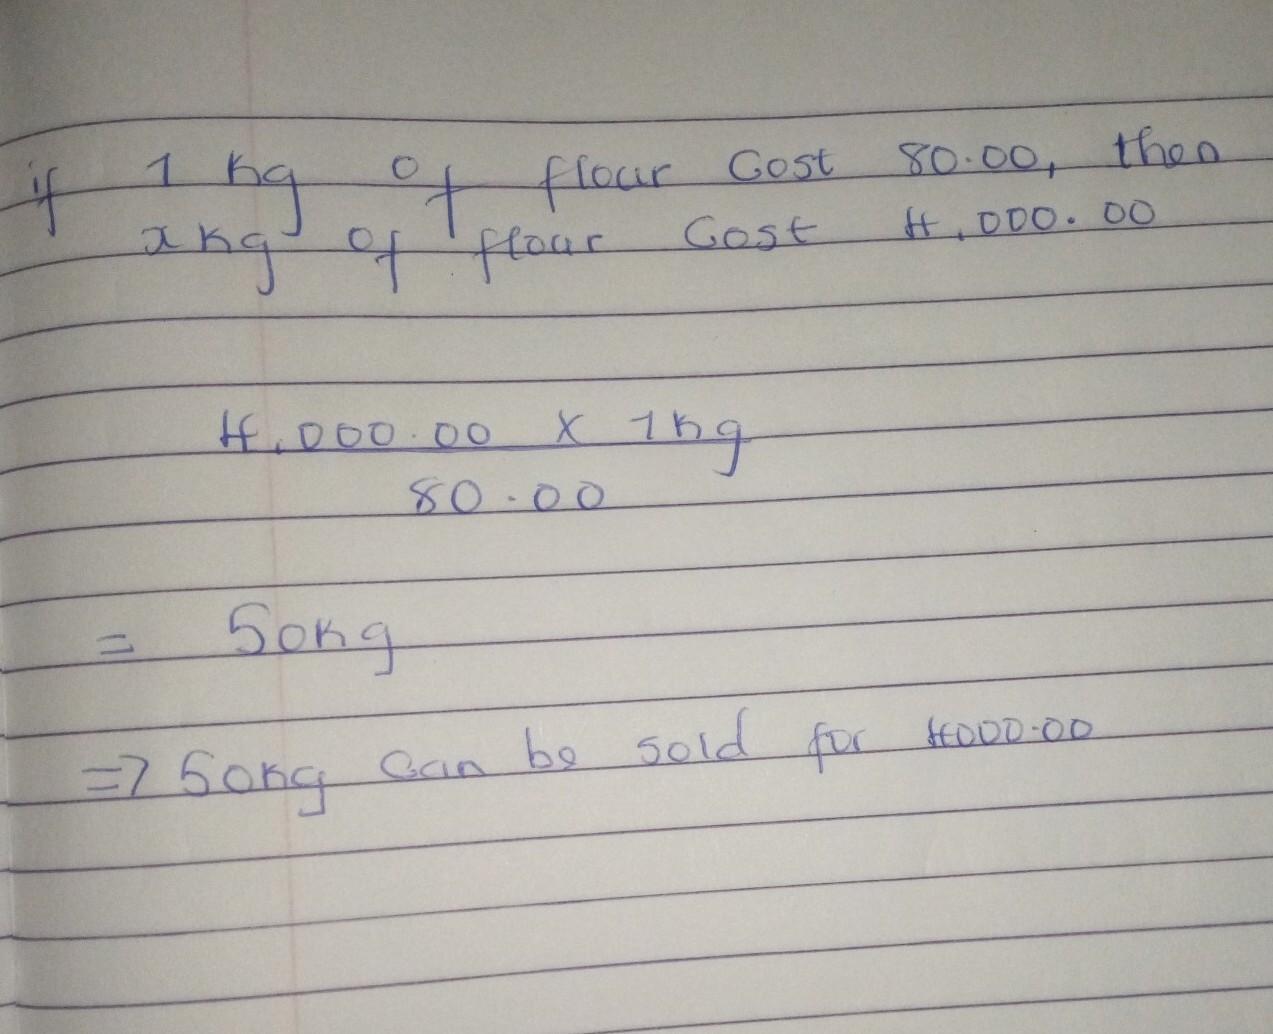 if 1 kg of flour cost 80.00, then
x kg of flour cost 4,000.00
4,000.00 x 1kg
80.00
= 50kg
=> 50kg can be sold for 4000.00